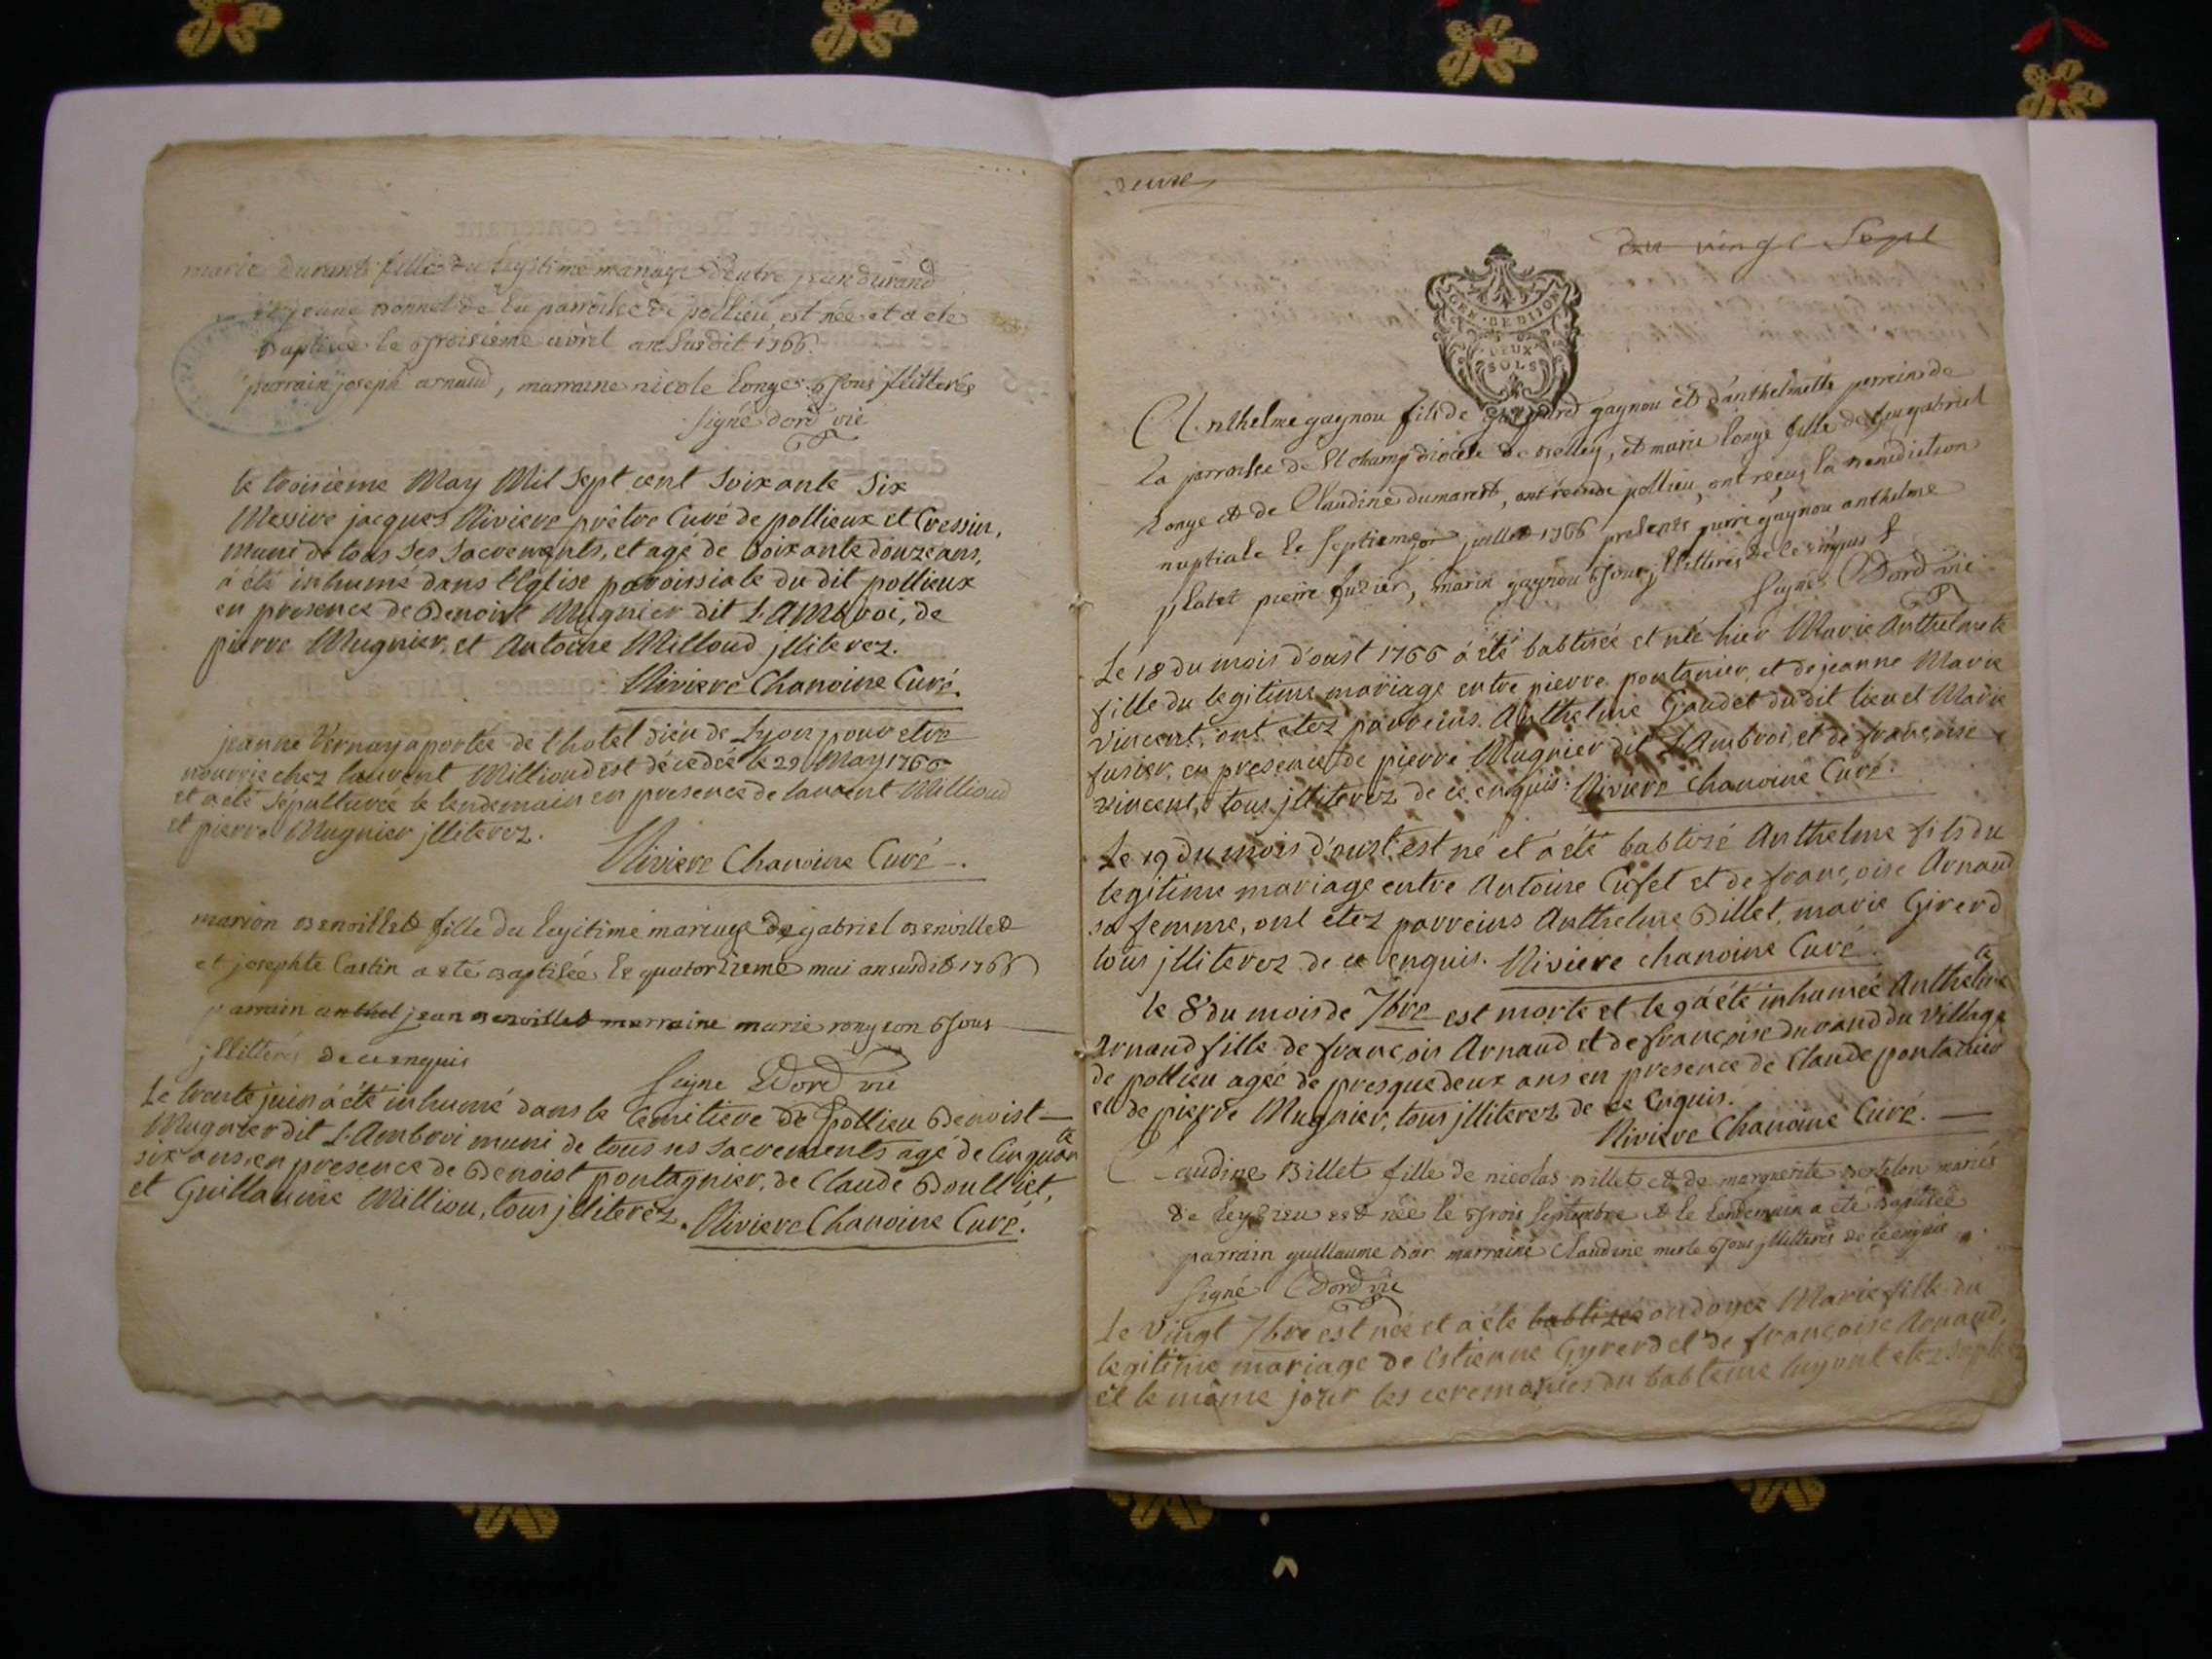 marie durand fille du legitime mariage d'entre jean durand
et jeanne bonnet de la parroisse de pollieu, est née et a eté
baptisée le troisieme avril an susdit 1766.
parrain joseph arnaud, marraine nicole longe tous illiterés
signé dord vic
le troisieme May Mil Sept cent soixante six
Messire jacques Riviere prêtre Curé de pollieux et Cressin,
muni de tous ses sacrements, et agé de soixante douze ans,
a été inhumé dans l'Eglise paroissiale du dit pollieux
en presence de Benoist Mugnier dit L'Ambroi, de
pierre Mugnier, et Antoine Milloud jlliterez.
Riviere Chanoine Curé.
jeanne Vernay aportée de l'hotel dieu de Lyon pour etre
nourrie chez laurent Millioud est décédée le 29 May 1766
et a eté sépulturée le lendemain en presence de laurent Millioud
et pierre Mugnier jlliterez.
Riviere Chanoine Curé.
marion benoillet fille du legitime mariage de gabriel benoillet
et josephte Castin a eté baptisée le quatorzieme mai an susdit 1766
parrain anthel jean benoillet marraine marie ronglon tous
jlliterés de ce enquis
signe Dord vic
Le trente juin a été inhumé dans le Cemitiere de Pollieu Benoist
Mugnier dit L'Ambroi muni de tous ses sacrements agé de Cinquante
six ans, en presence de Benoist pontagnier, de Claude Doulliet,
et Guillaume Milliou, tous jlliterez. Riviere Chanoine Curé.
du vingt Sept
GEN. DE DIJON
DEUX
SOLS
Anthelme gagnou fils de gagnou et d'anthelmette perrin de
la parroisse de St champ diocèse de belley, et marie longe fille de feu gabriel
longe et de Claudine dumarest, de pollieu, ont reçus la benediction
nuptiale le septieme juillet 1766 presents pierre gagnou anthelme
platet pierre fuzier, marin gagnou tous jlliterés de ce enquis
signé Dord vic
Le 18 du mois d'oust 1766 a été babtisée et née hier Marie Anthelmete
fille du legitime mariage entre pierre pontanier, et de jeanne Marie
Vincent, ont etez parreins Anthelme Gaudet du dit lieu et Marie
fusier, en presence de pierre Mugnier dit L'Ambroi, et de françoise
vincent, tous jlliterez de ce enquis: Riviere chanoine Curé.
Le 19 du mois d'oust est né et a été babtizé Anthelme fils du
legitime mariage entre Antoine Cufet et de françoise Arnaud
sa femme, ont etez parreins Anthelme Billet, marie Girerd
tous jlliterez de ce enquis. Riviere chanoine Curé.
le 8 du mois de 7bre est morte et le 9 a été inhumée Anthelmete
Arnaud fille de françois Arnaud et de françoise durand du village
de pollieu agée de presque deux ans en presence de Claude pontanier
et de pierre Mugnier, tous jlliterez de ce enquis.
Riviere Chanoine Curé.
Claudine Billet fille de nicolas billet et de marguerite bertelon mariés
de leyzieu est née le trois septembre et le lendemain a eté baptisée
parrain guillaume bor marraine Claudine merle tous jlliterés de ce enquis
signé Dord vic
Le Vingt 7bre est née et a été babtizée ondoyée Marie fille du
legitime mariage de Estienne Gyrerd et de françoise Arnaud,
et le même jour les ceremonies du babteme luy ont etez